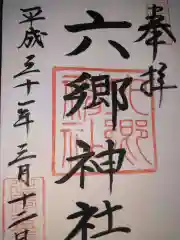 奉拝
六郷神社
平成三十一年三月十二日